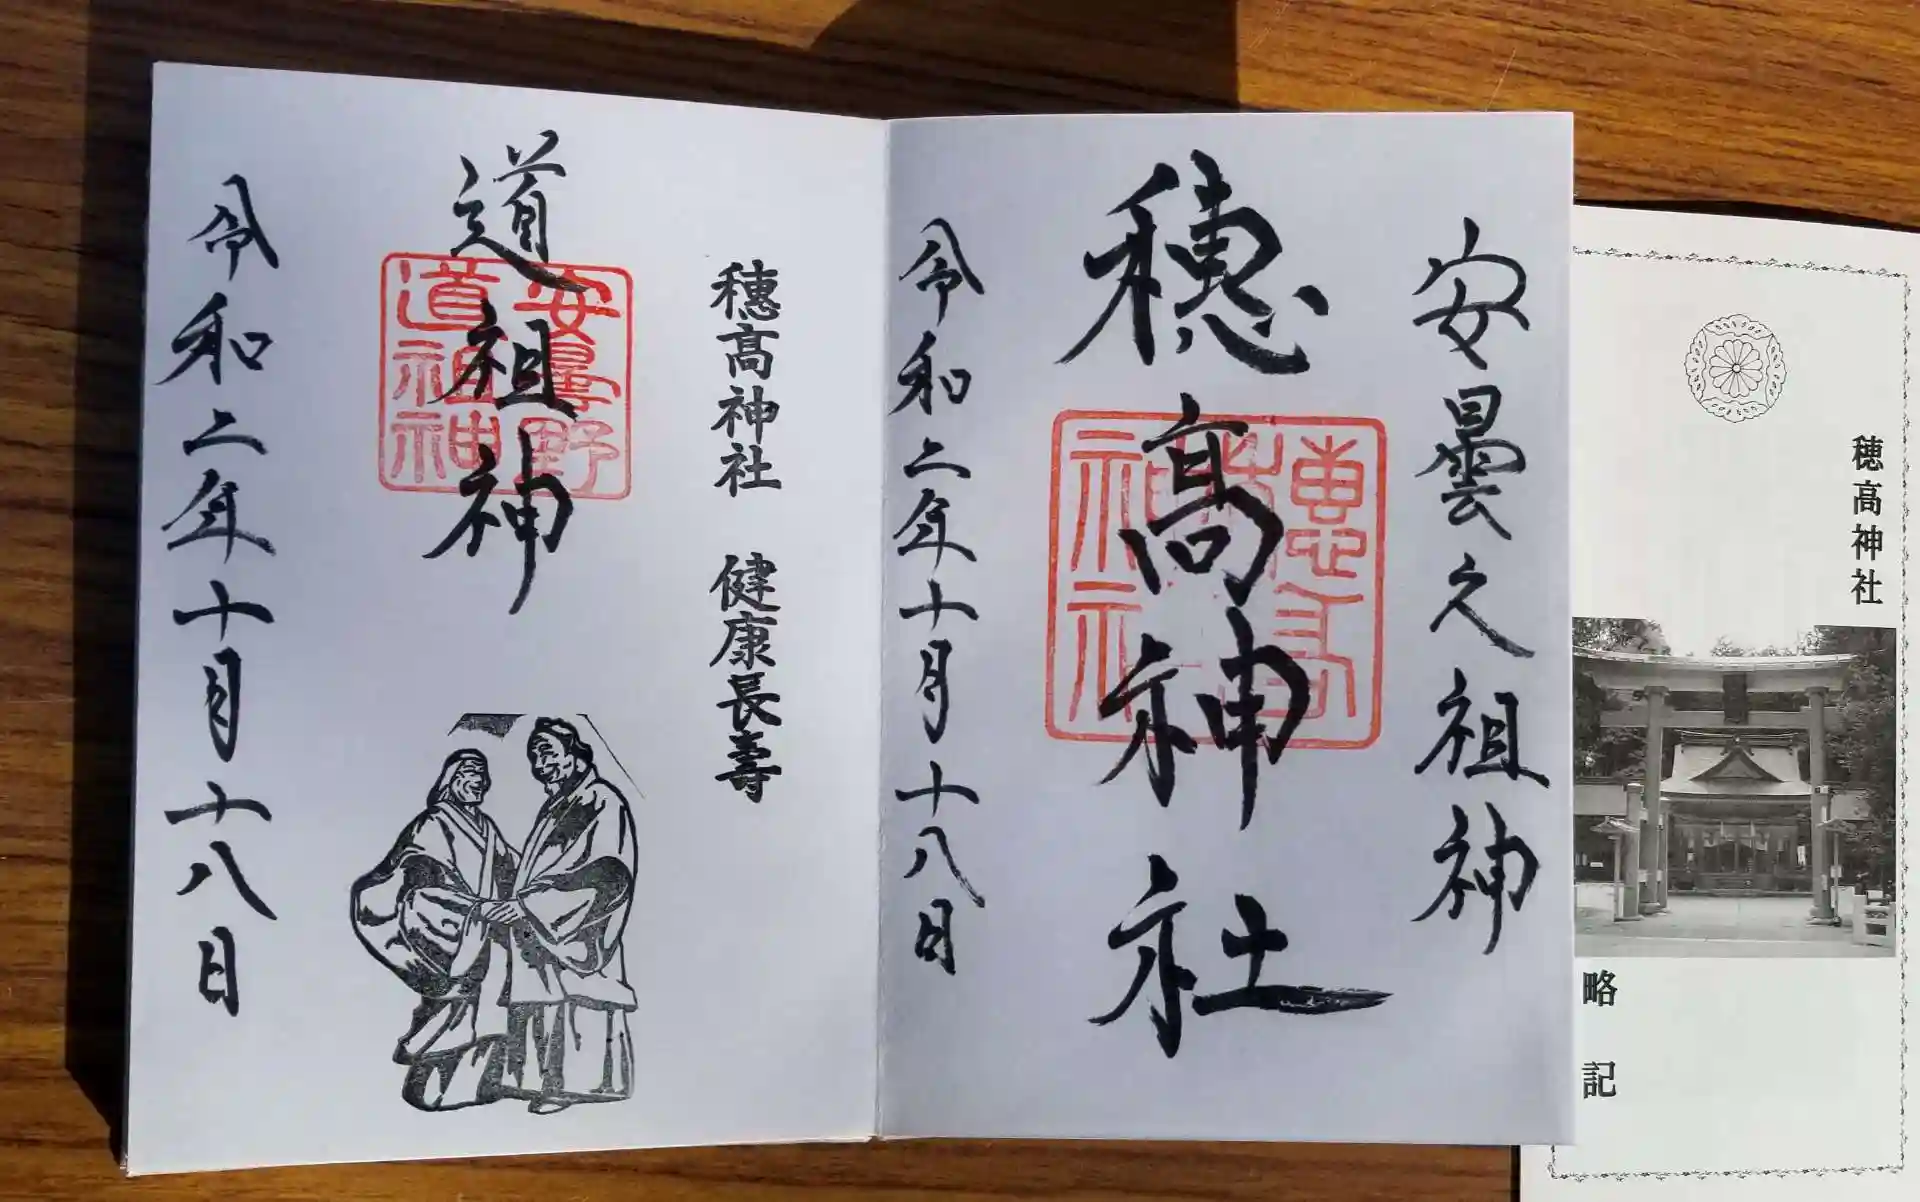 安曇之祖神
穂髙神社
穗高神社
令和二年十月十八日
穗髙神社 健康長壽
道祖神
安曇野
道祖神
令和二年十月十八日
穂高神社
略記